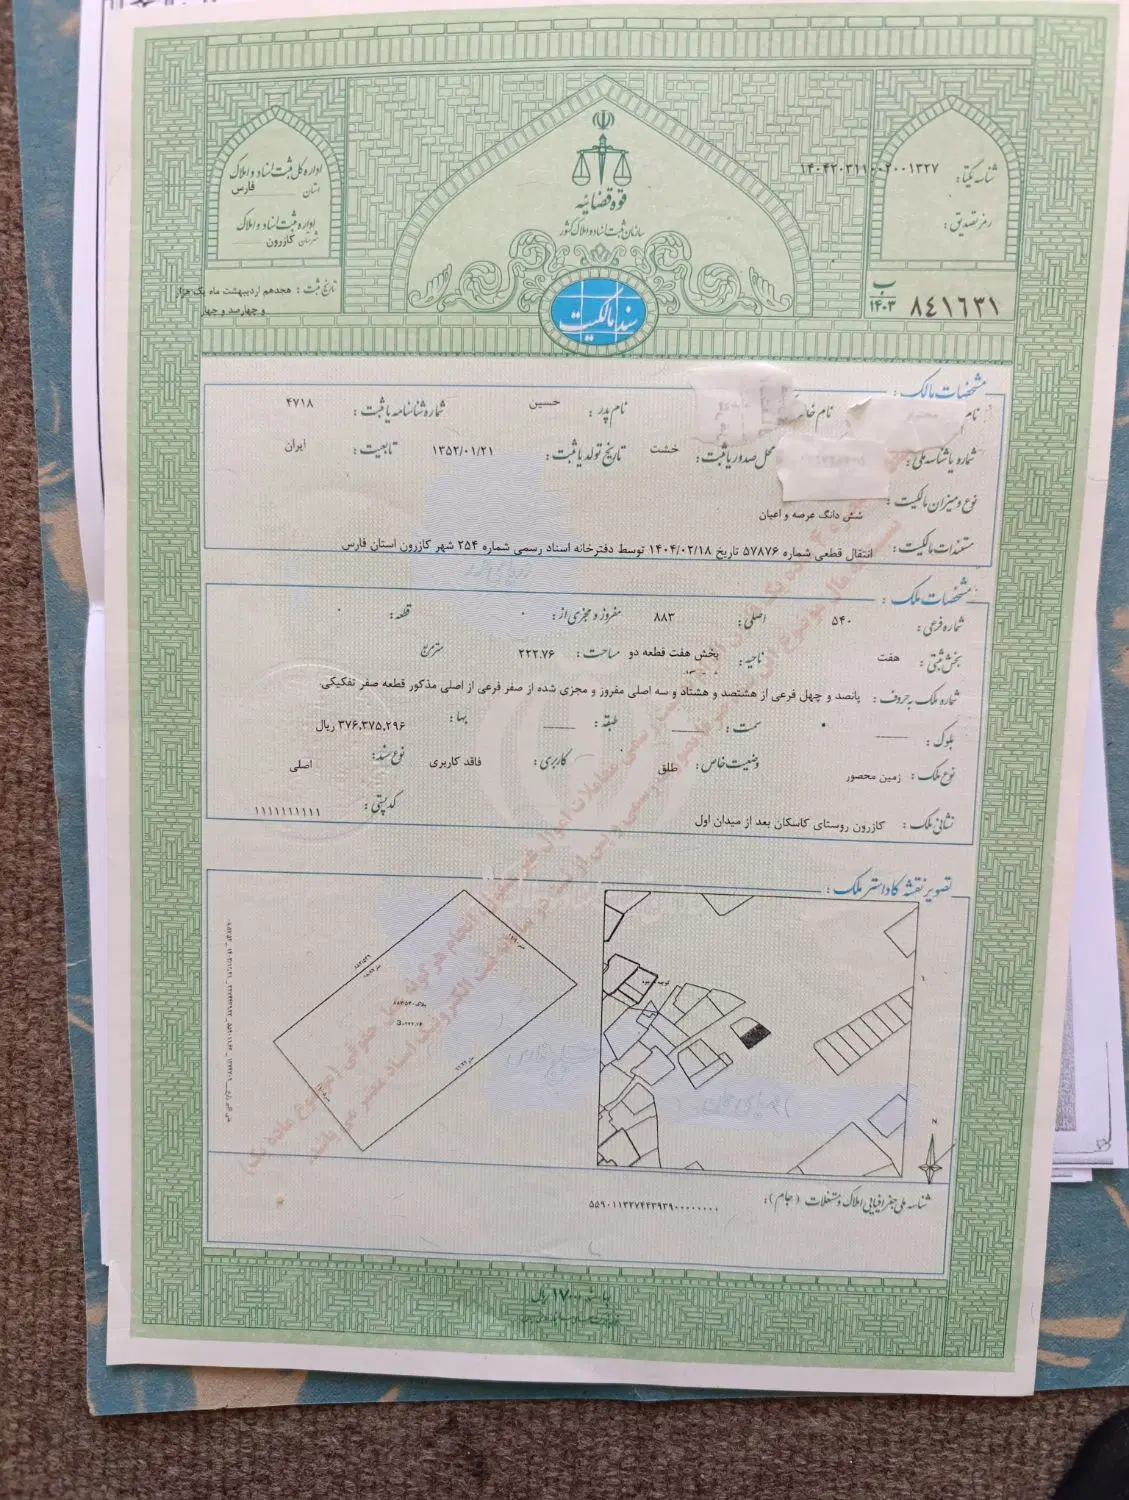 قوه قضائیه
سازمان ثبت اسناد و املاک کشور
سند مالکیت
شناسه یکتا: ۱۴۰۴۲۰۳۱۱۰۰۲۰۰۱۳۲۷
رمز تصدیق:
ب
۱۴۰۳
۸۴۱۶۳۱
اداره کل ثبت اسناد و املاک
استان فارس
اداره ثبت اسناد و املاک
شهرستان کازرون
تاریخ ثبت: هجدهم اردیبهشت ماه یک هزار
و چهارصد و چهار
مشخصات مالک:
نام نام خا نام پدر: حسین شماره شناسنامه یا ثبت: ۴۷۱۸
شماره یا شناسه ملی: محل صدور یا ثبت: خشت تاریخ تولد یا ثبت: ۱۳۵۲/۰۱/۲۱ تابعیت: ایران
نوع و میزان مالکیت: شش دانگ عرصه و اعیان
مستندات مالکیت: انتقال قطعی شماره ۵۷۸۷۶ تاریخ ۱۴۰۴/۰۲/۱۸ توسط دفترخانه اسناد رسمی شماره ۲۵۴ شهر کازرون استان فارس
مشخصات ملک:
شماره فرعی: ۵۴۰ اصلی: ۸۸۳ مفروز و مجزی از: ۰ قطعه: ۰
بخش ثبتی: هفت ناحیه: بخش هفت قطعه دو مساحت: ۲۲۲.۷۶ متر مربع
شماره ملک به حروف: پانصد و چهل فرعی از هشتصد و هشتاد و سه اصلی مفروز و مجزی شده از صفر فرعی از اصلی مذکور قطعه صفر تفکیکی.
بلوک: سمت: طبقه: بها: ۳۷۶,۳۷۵,۲۹۶ ریال
نوع ملک: زمین محصور وضعیت خاص: طلق کاربری: فاقد کاربری نوع سند: اصلی
نشانی ملک: کازرون روستای کاسکان بعد از میدان اول کد پستی: ۱۱۱۱۱۱۱۱۱۱
تصویر نقشه کاداستر ملک:
N
شناسه ملی جغرافیایی املاک و مستغلات (جام):